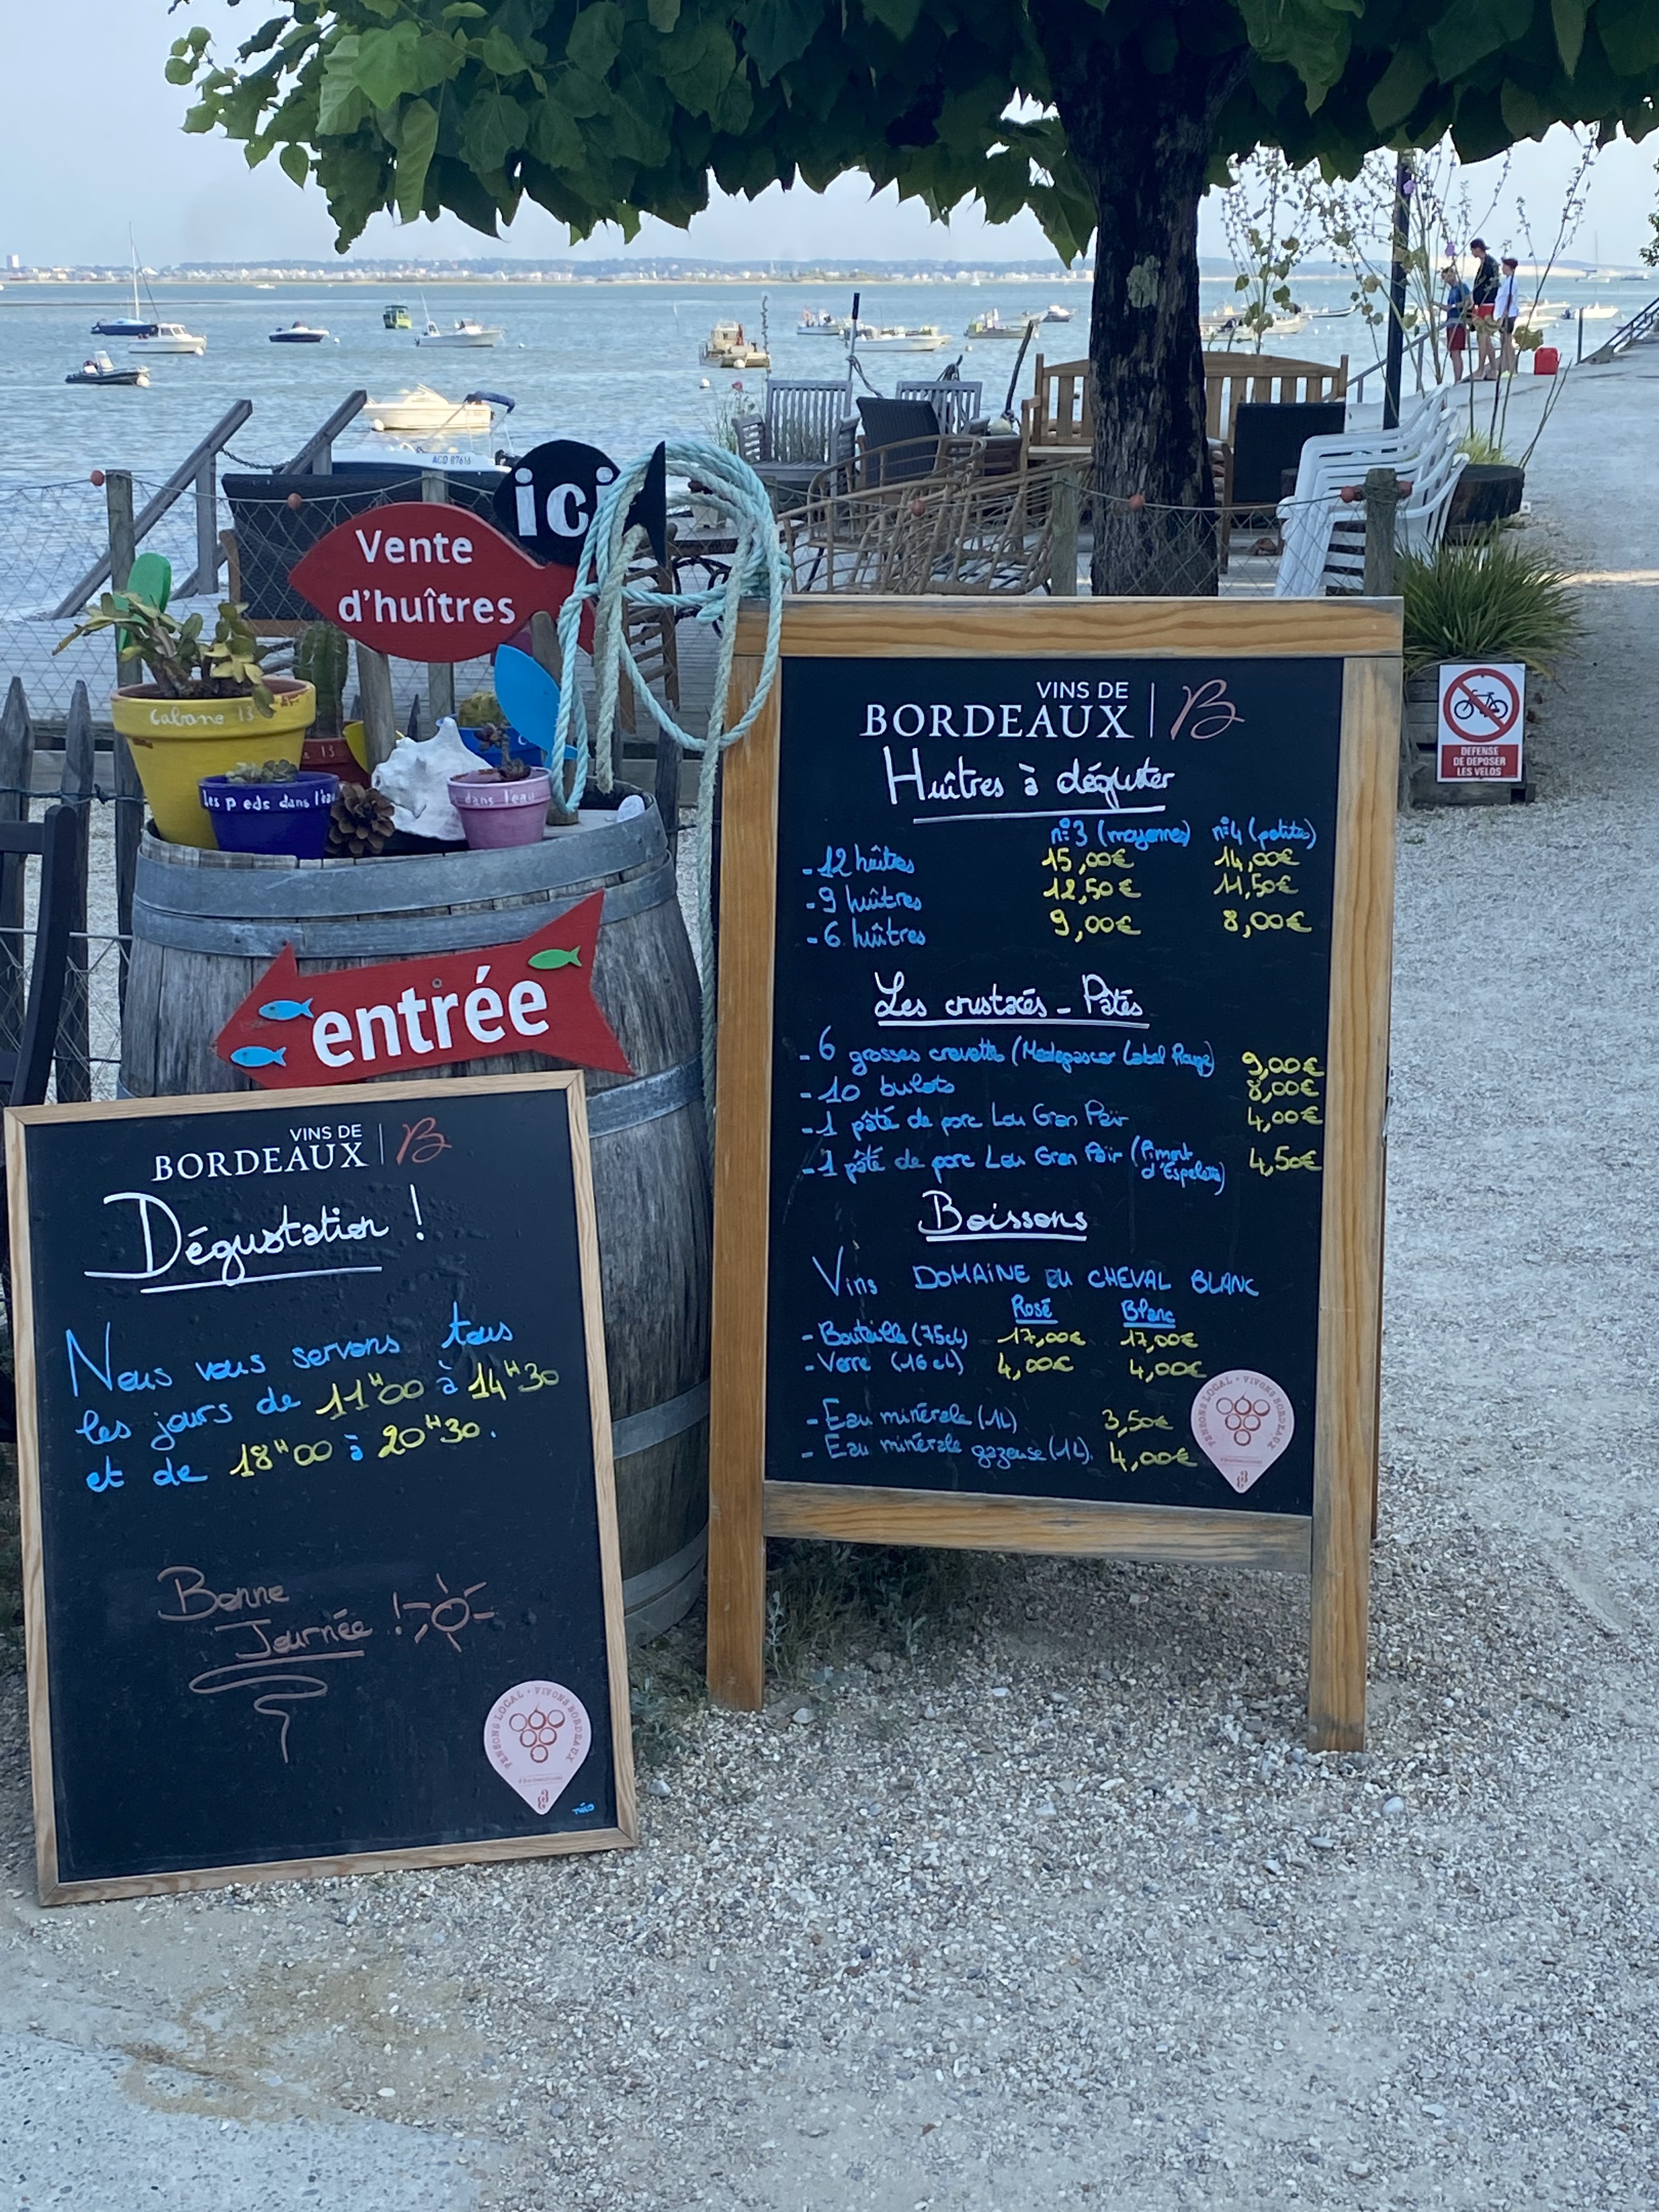 ici
Vente
d'huîtres
Cabane 13
13
les pieds dans l'eau
dans l'eau
entrée
ACO 87616
VINS DE
BORDEAUX
Dégustation !
Nous vous servons tous
les jours de 11H00 à 14H30
et de 18H00 à 20H30.
Bonne
Journée !
PENSONS LOCAL • VIVONS BORDEAUX
THÉO
VINS DE
BORDEAUX
Huîtres à déguster
n°3 (moyennes) n°4 (petites)
- 12 huîtres 15,00€ 14,00€
- 9 huîtres 12,50€ 11,50€
- 6 huîtres 9,00€ 8,00€
Les crustacés - Pâtés
- 6 grosses crevettes (Madagascar Label Rouge) 9,00€
- 10 bulots 8,00€
- 1 pâté de porc Lou Gran Païr 4,00€
- 1 pâté de porc Lou Gran Païr (Piment d'Espelette) 4,50€
Boissons
Vins DOMAINE DU CHEVAL BLANC
Rosé Blanc
- Bouteille (75cl) 17,00€ 17,00€
- Verre (16cl) 4,00€ 4,00€
- Eau minérale (1L) 3,50€
- Eau minérale gazeuse (1L). 4,00€
PENSONS LOCAL • VIVONS BORDEAUX
DEFENSE
DE DEPOSER
LES VELOS